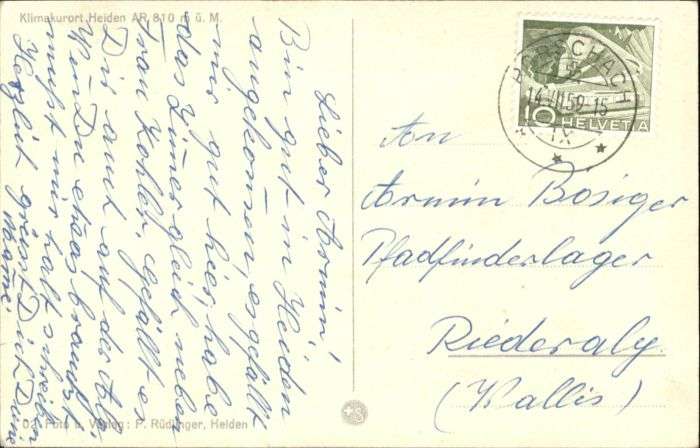 Klimakurort Heiden AR 810 m ü. M.
Lieber Armin!
Bin gut in Heiden
angekomen, es gefällt
mir gut hier, habe
das Zimer gleich neben
Frau Kohler, gefällt es
Dir auch auf der Alp.
Wen Du etwas brauchst
muhst mir halt schreiben
Herzlich grüsst Dich Deine
Mame.
RORSCHACH
14.VII.59-15
10
HELVETIA
An
Armin Bösiger
Pfadfinderlager
Riederalp
(Wallis)
Foto u. Verlag: P. Rüdinger, Heiden